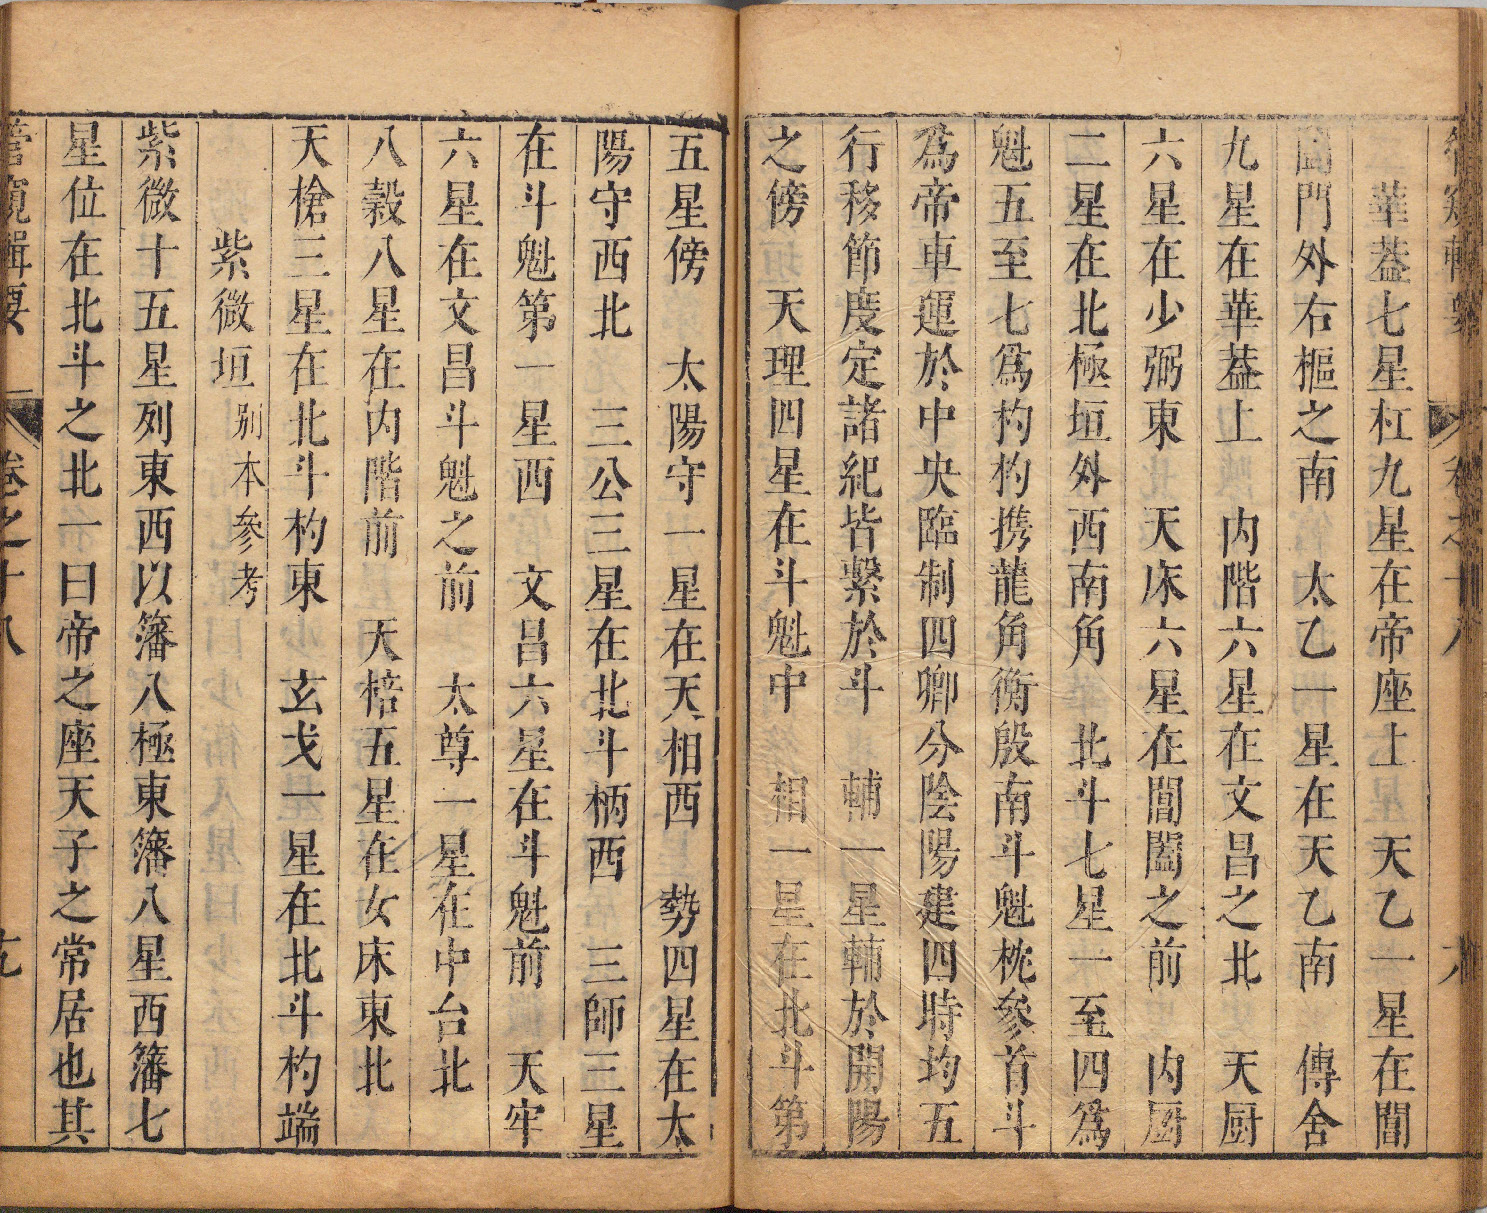 管窺輯要 卷之十八 八
華葢七星杠九星在帝座上 天乙一星在閶
闔門外右樞之南 太乙一星在天乙南 傳舍
九星在華葢上 内階六星在文昌之北 天厨
六星在少弼東 天床六星在閶闔之前 内厨
二星在北極垣外西南角 北斗七星一至四爲
魁五至七爲杓杓携龍角衡殷南斗魁枕參首斗
爲帝車運於中央臨制四卿分陰陽建四時均五
行移節度定諸紀皆繫於斗 輔一星輔於開陽
之傍 天理四星在斗魁中 相一星在北斗第
五星傍 太陽守一星在天相西 勢四星在太
陽守西北 三公三星在北斗柄西 三師三星
在斗魁第一星西 文昌六星在斗魁前 天牢
六星在文昌斗魁之前 太尊一星在中台北
八穀八星在内階前 天棓五星在女床東北
天槍三星在北斗杓東 玄戈一星在北斗杓端
紫微垣 别本參考
紫微十五星列東西以籓八極東籓八星西籓七
星位在北斗之北一曰帝之座天子之常居也其
管窺輯要 卷之十八 九